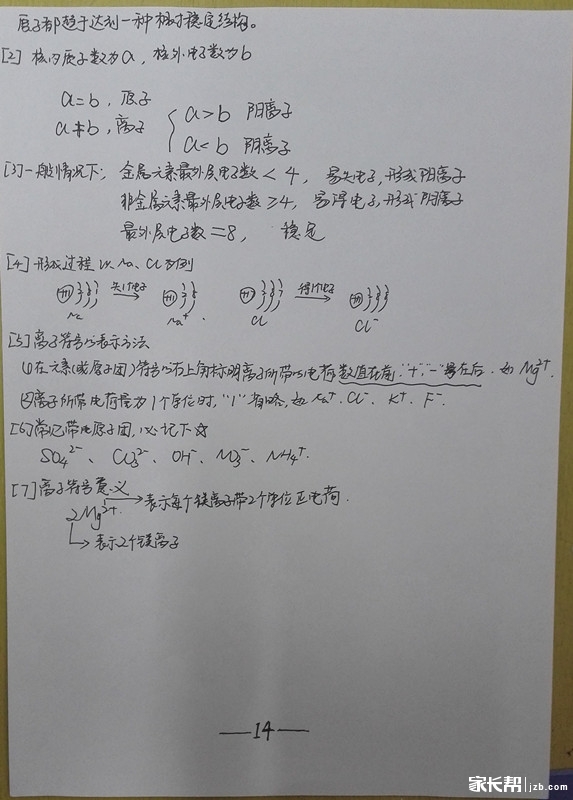 原子都趋于达到一种相对稳定结构。
[2] 核内质子数为a，核外电子数为b
a=b，原子
a≠b，离子
a>b 阳离子
a<b 阴离子
[3]一般情况下：金属元素最外层电子数<4，易失电子，形成阳离子
非金属元素最外层电子数≥4，易得电子，形成阴离子
最外层电子数=8，稳定
[4]形成过程以Na、Cl为例
失1个电子 得1个电子
Na Na⁺. Cl Cl⁻
[5]离子符号的表示方法
①在元素(或原子团)符号的右上角标明离子所带的电荷数值在前，"+"、"-"号在后. 如Mg²⁺.
②离子所带电荷量为1个单位时，"1"省略，如Na⁺. Cl⁻. K⁺. F⁻.
[6]常见带电原子团，必记下来
SO₄²⁻、CO₃²⁻、OH⁻、NO₃⁻、NH₄⁺.
[7]离子符号意义
2Mg²⁺. →表示每个镁离子带2个单位正电荷.
→表示2个镁离子
—14—
家长帮 jzb.com